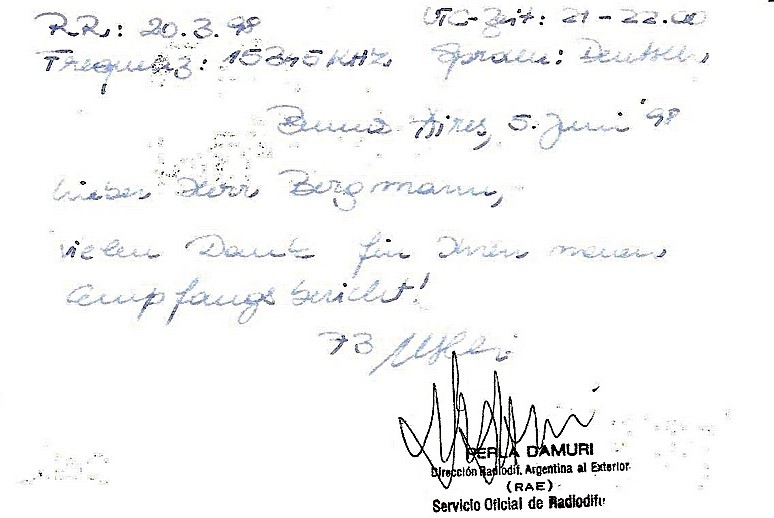 RR: 20.3.98 UTC-Zeit: 21-22.00
Frequenz: 15345 KHz Sprache: Deutsch
Buenos Aires, 5. Juni '98
Lieber Herr Bergmann,
vielen Dank für Ihren neuen
Empfangsbericht!
73
PERLA DAMURI
Dirección Radiodif. Argentina al Exterior
(RAE)
Servicio Oficial de Radiodifu